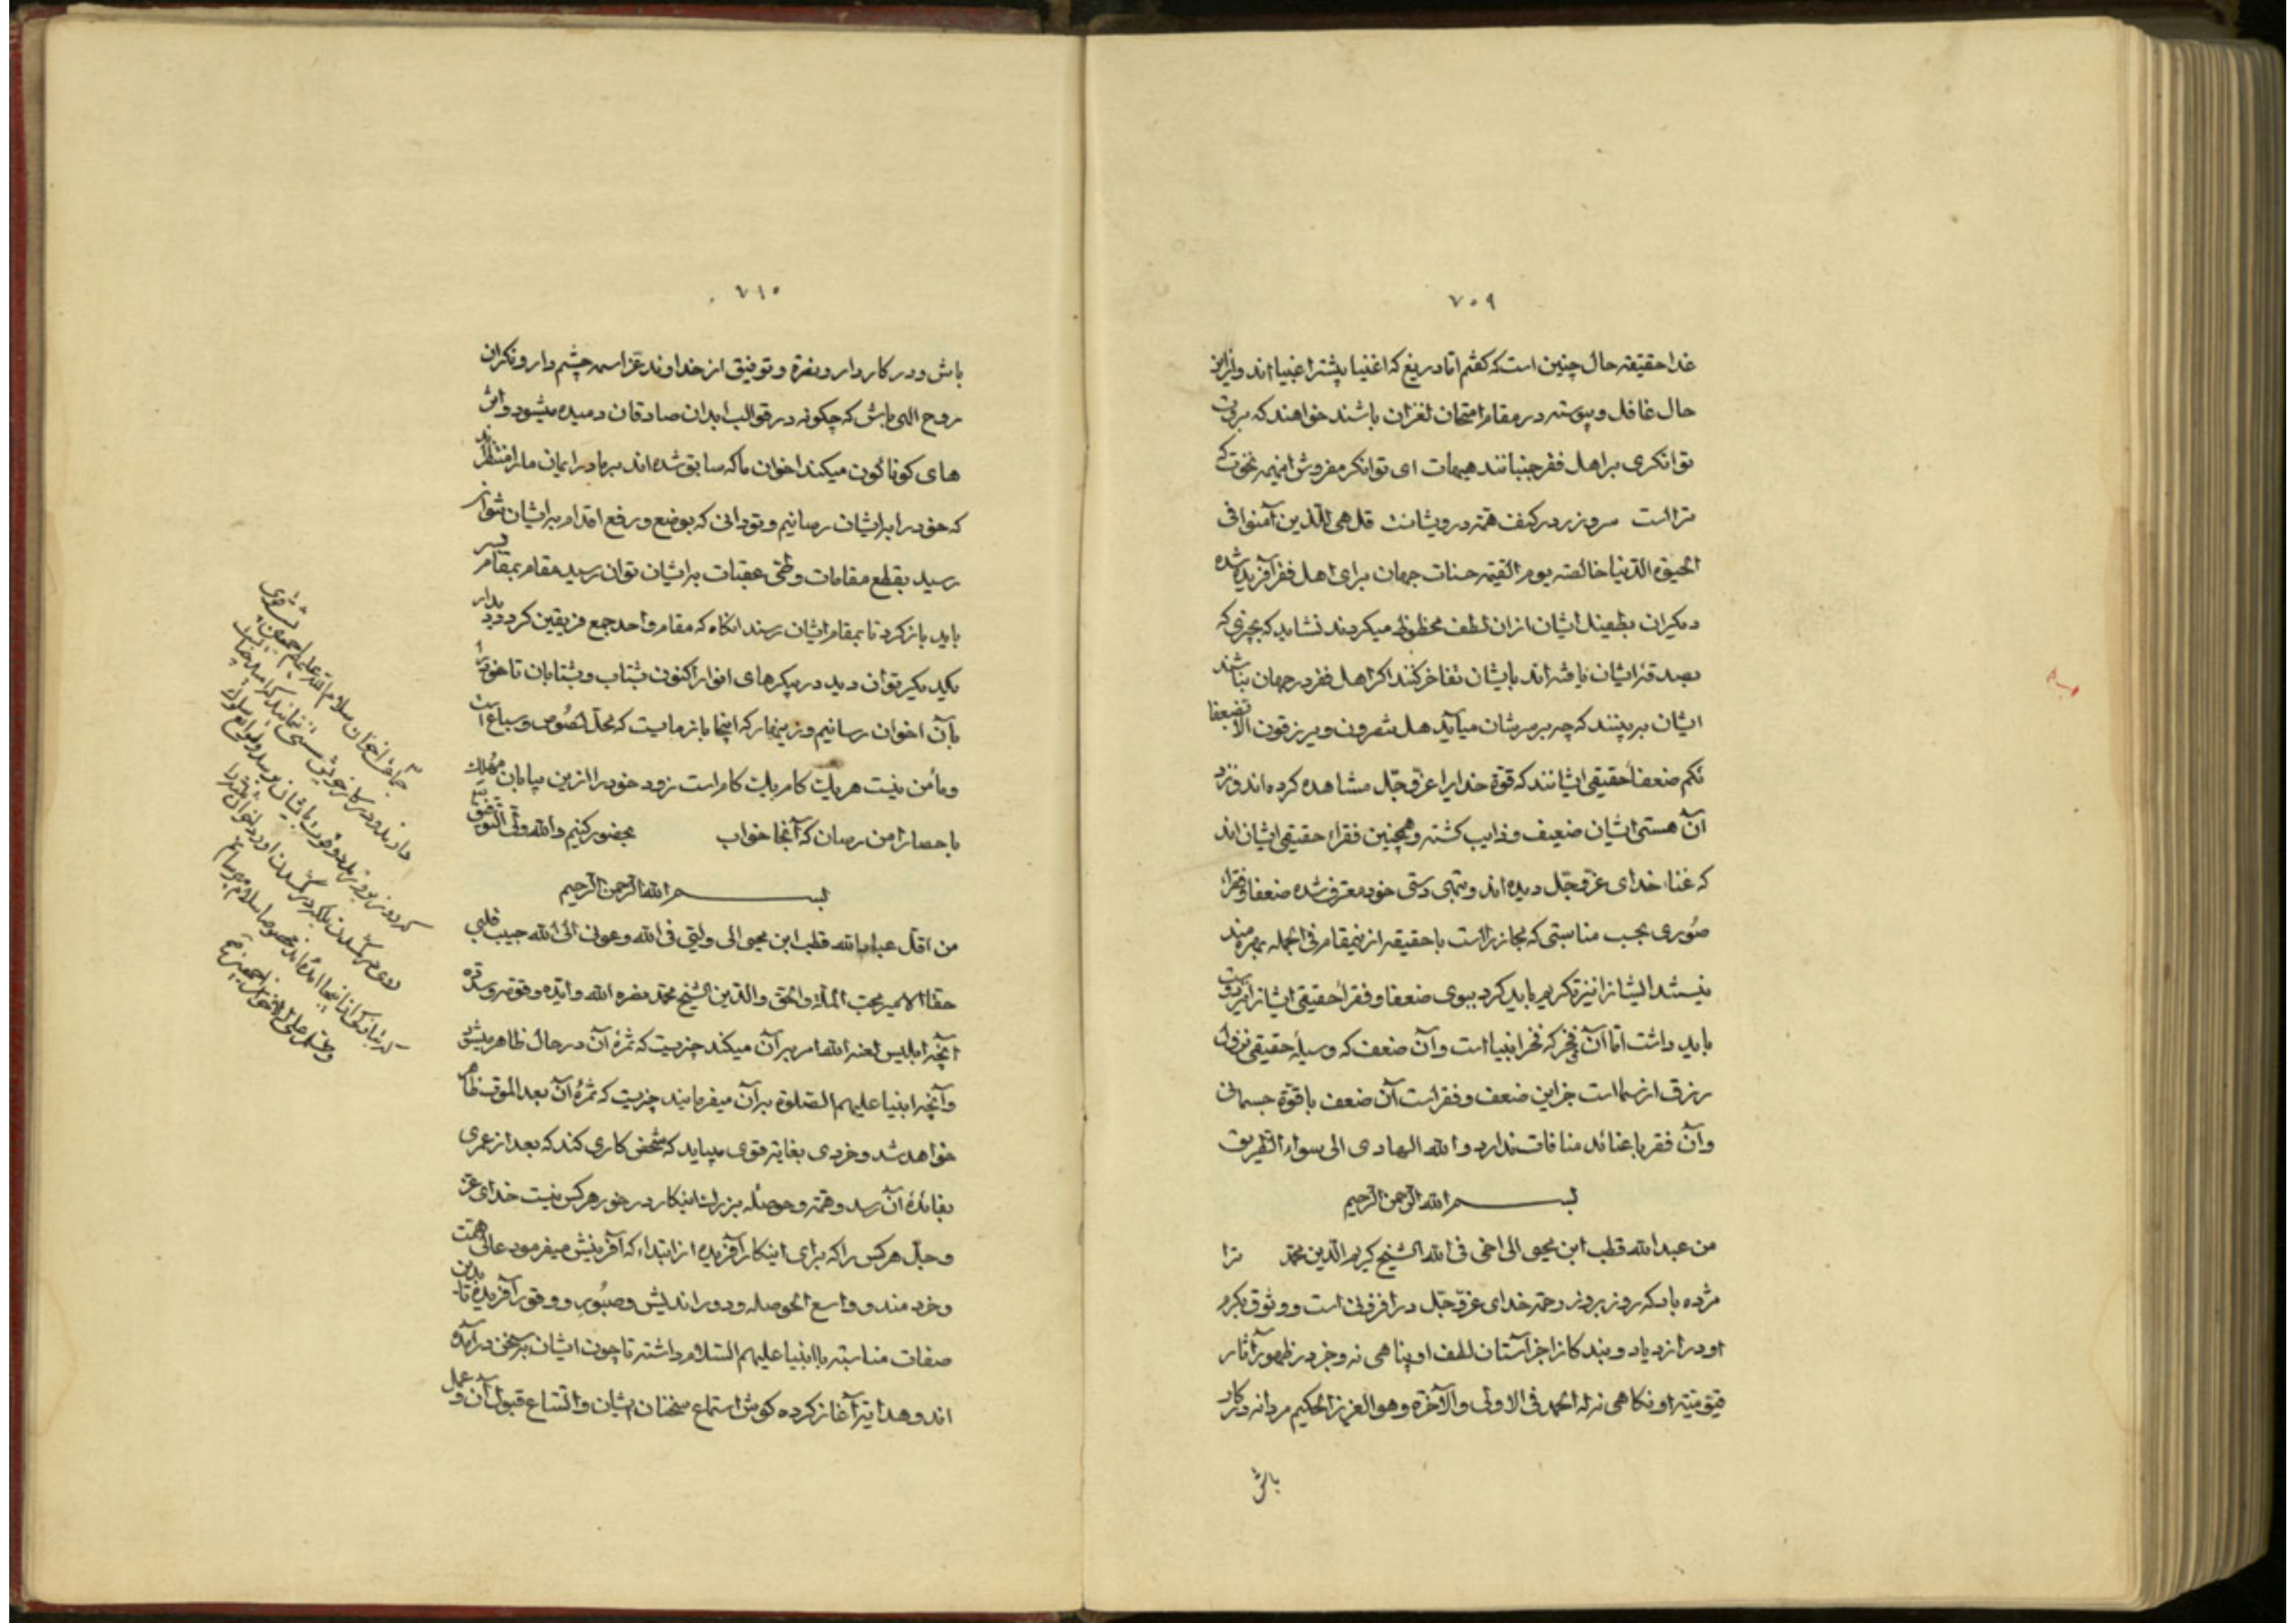 ۷۰۹
غدا حقیقته حال چنین است که گفتم اما دریغ که اغنیا بیشتر اغبیا اند و ازین
حال غافل و پیوسته در مقام امتحان لغزان باشند خواهند که بروت
توانگری بر اهل فقر جنبانند هیهات ای توانگر مفروش اینهمه نخوت که
ترا است سر و زر در کنف همت درویشانست قل هی للذین آمنوا فی
الحیوة الدنیا خالصته یوم القیمه حسنات جهان برای اهل فقر آفریده شده
دیگران بطفیل ایشان ازان لطف محظوظ میگردند نشاید که بچیزی که
بصدقه ایشان یافته اند بایشان تفاخر کنند اگر اهل فقر در جهان نباشند
ایشان ببینند که چه بر سرشان میآید هل تنصرون و یرزقون الا بضعفا
ئکم ضعفاء حقیقی ایشانند که قوة خدایرا عز و جل مشاهده کرده اند و نزد
آن هستی ایشان ضعیف و ذایب گشته و همچنین فقراء حقیقی ایشان اند
که غناء خدای عز و جل دیده اند و بتهی دستی خود معترف شده ضعفا و فقراء
صوری بحسب مناسبتی که مجاز را است با حقیقه ازینمقام فی الجمله بهره مند
نیستند ایشانرا نیز تکریم باید کرد ببوی ضعفا و فقراء حقیقی ایشانرا دوست
باید داشت اما آن فقر که فخر انبیا است و آن ضعف که وسیلهٔ حقیقی نزول
رزق از سما است جز این ضعف و فقر است آن ضعف با قوة جسمانی
و آن فقر با غنائد منافات ندارد و الله الهادی الی سواء الطریق
بسم الله الرحمن الرحیم
من عبد الله قطب ابن محیی الی اخی فی الله الشیخ کریم الدین محمد ترا
مژده باد که روز بروز رحمة خدای عز و جل در افزونی است و وثوق بکرم
او در ازدیاد و بندکانرا جز آستان لطف او پناهی نه و جز در ظهور آثار
قیومیته او نکاهی نه له الحمد فی الاولی و الآخرة و هو العزیز الحکیم مردانه در کار
باش
۷۱۰
باش و در کار دار و نصرة و توفیق از خداوند عز اسمه چشم دار و نکران
روح اللهی باش که چکونه در قوالب ابدان صادقان دمیده میشود و اثر
های کوناکون میکند اخوان ما که سابق شده اند بر ما در ایمان ما را منتظر اند
که خود را بر ایشان رسانیم و تو دانی که بوضع و رفع اقدام بر ایشان نتوان
رسید بقطع مقامات و طی عقبات بر ایشان توان رسید مقام بمقام سیر
باید باز کرد تا بمقام ایشان رسند انکاه که مقام واحد جمع فریقین کرد دیدار
یکدیکر توان دید در پیکرهای انوار اکنون بشتاب و بشتابان تا خود را
بآن اخوان رسانیم و زینهار که اینجا باز مایست که محل لصوص و سباع است
و مأمن نیست هریک کام یک کام است زود خود را ازین بیابان مهلک
با حصار امن رسان که آنجا خواب بحضور کنیم و الله ولی التوفیق
بسم الله الرحمن الرحیم
من اقل عباد الله قطب ابن محیی الی ولیی فی الله و عونی الی الله حبیب قلبی
حقا الامیر محب الملة و الحق و الدین الشیخ محمد نصره الله و ایده و وفقه و سدده
آنچه ابلیس لعنه الله امر بر آن میکند چیزیست که ثمرهٔ آن در حال ظاهر میشود
و آنچه انبیا علیهم الصلوة بر آن میفرمایند چیزیست که ثمرهٔ آن بعد الموت ظاهر
خواهد شد و خردی بغایة قوی میباید که شخص کاری کند که بعد از عمری
بفائدهٔ آن رسد و همة و حوصله بزرک اینکار در خور هر کس نیست خدای عز
و جل هر کس را که برای اینکار آفریده از ابتداء که آفرینش میفرمود عالی همت
و خردمند و واسع الحوصله و دور اندیش و صبور و وقور آفریده تا بدین
صفات مناسبة با انبیا علیهم السلام داشته تا چون ایشان بسخن در آیند
اند و هدایة آغاز کرده کوش استماع سخنان ایشان و اتساع قبول آن و عمل
جماعة اخوان سلام الله علیهم اجمعین